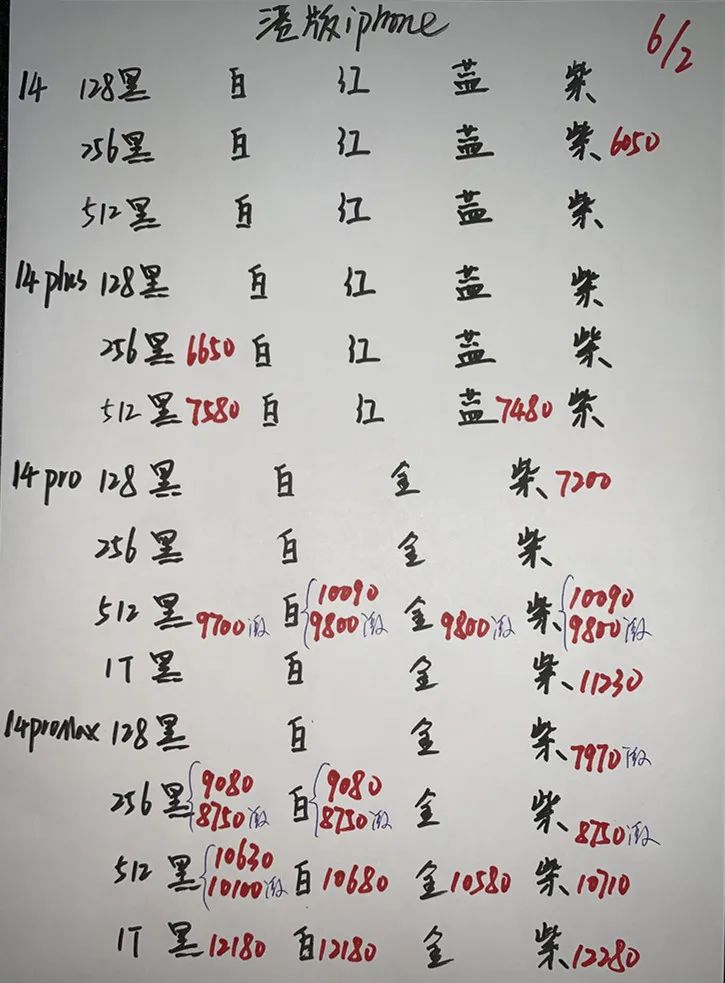 港版iphone 6/2
14 128黑 白 红 蓝 紫
256黑 白 红 蓝 紫6050
512黑 白 红 蓝 紫
14plus 128黑 白 红 蓝 紫
256黑6650 白 红 蓝 紫
512黑7580 白 红 蓝7480 紫
14pro 128黑 白 金 紫7200
256黑 白 金 紫
512黑9700激 白{10090 9800激 金9800激 紫{10090 9800激
1T黑 白 金 紫11230
14promax 128黑 白 金 紫7970激
256黑{9080 8750激 白{9080 8750激 金 紫8750激
512黑{10630 10100激 白10680 金10580 紫10710
1T黑12180 白12180 金 紫12280